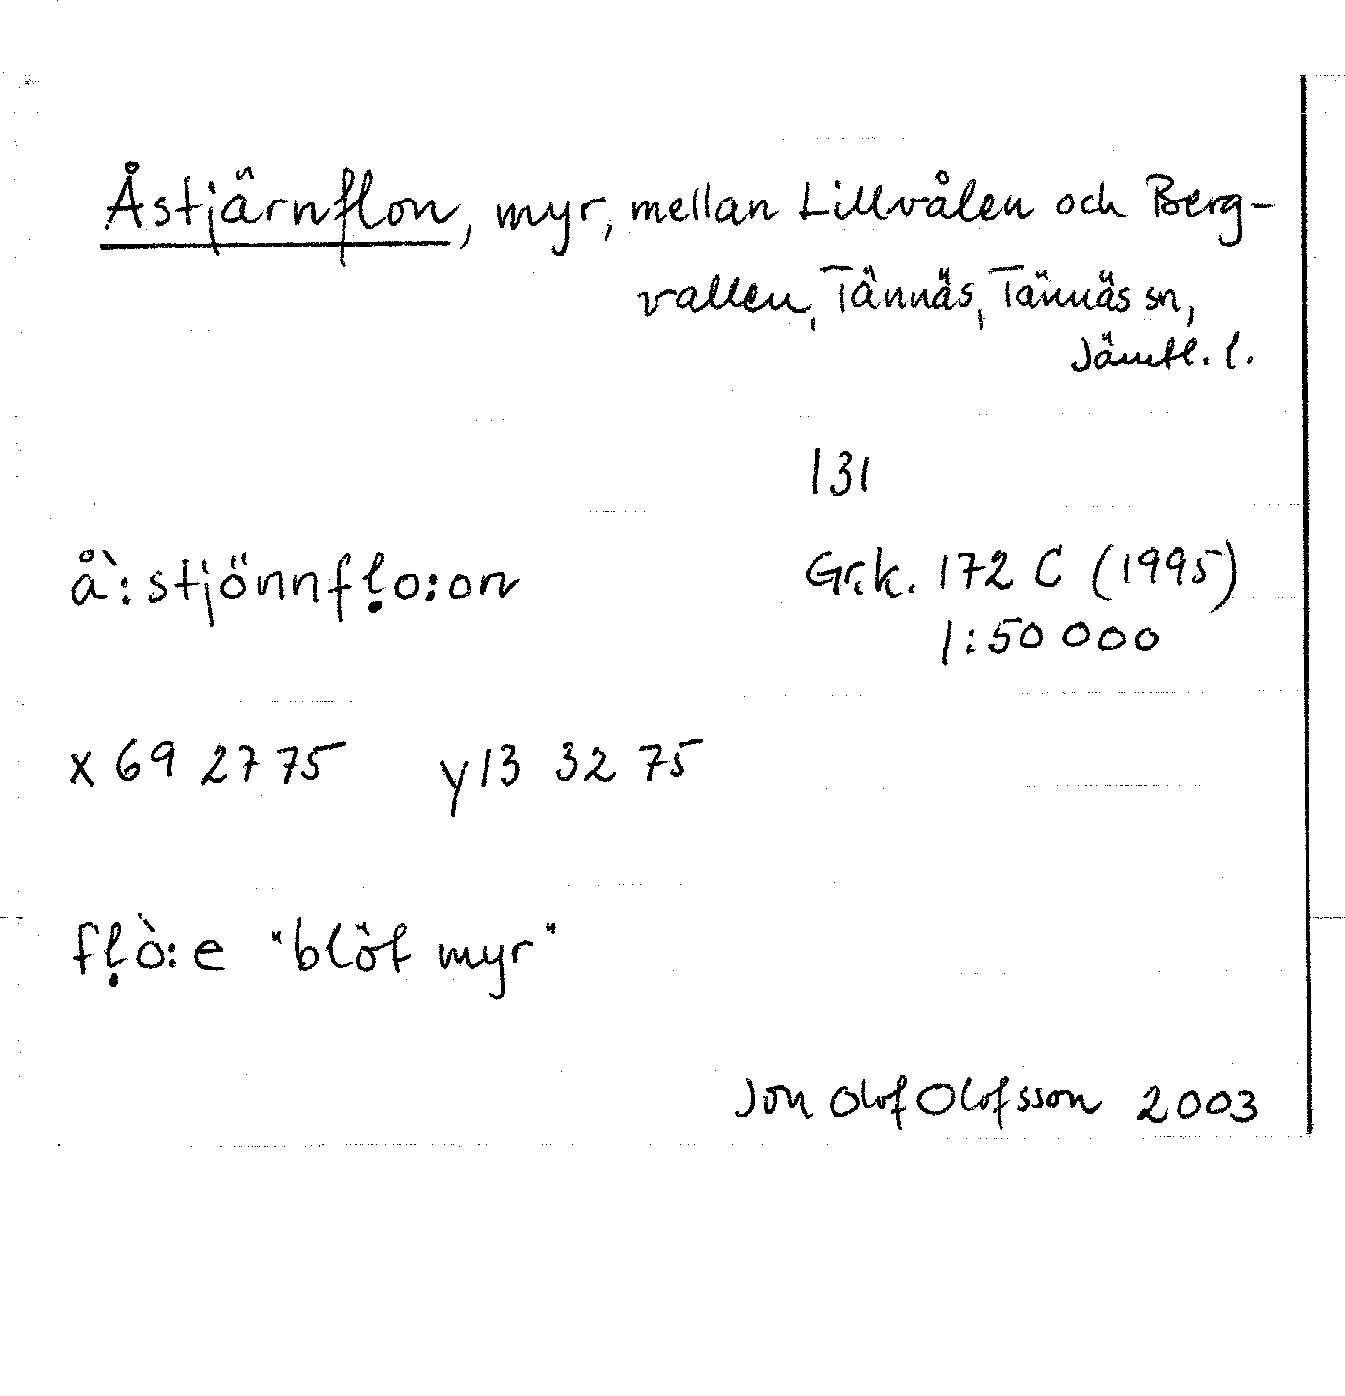 Åstjärnflon, myr, mellan Lillvålen och Berg-
vallen, Tännäs, Tännäs sn,
Jämtl. l.
131
å̀:stjönnfḷo:on
Gr.k. 172 C (1995)
1:50 000
x 69 27 75 y 13 32 75
fḷò:e "blöt myr"
Jon Olof Olofsson 2003